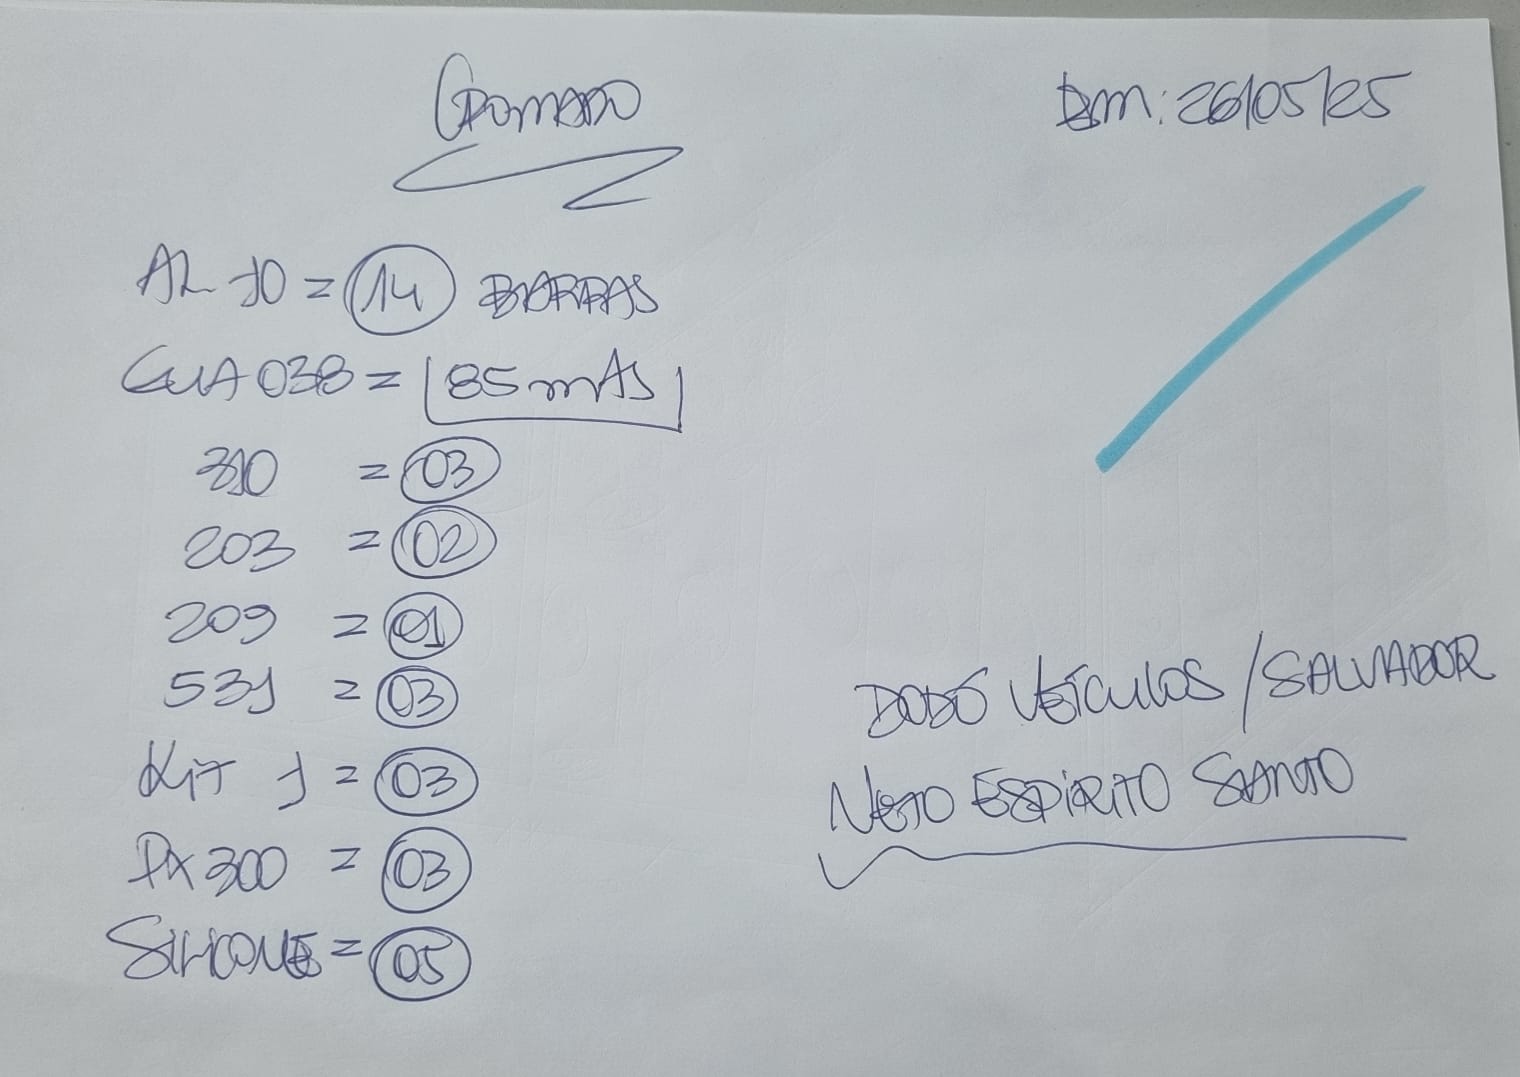 CROMADO
Em: 26/05/25
AL 10 = 14 BARRAS
GUIA 038 = 85 mts
310 = 03
203 = 02
209 = 01
531 = 03
Kit 1 = 03
PX 300 = 03
SILICONE = 05
DODÓ VEÍCULOS / SALVADOR
NETO ESPÍRITO SANTO